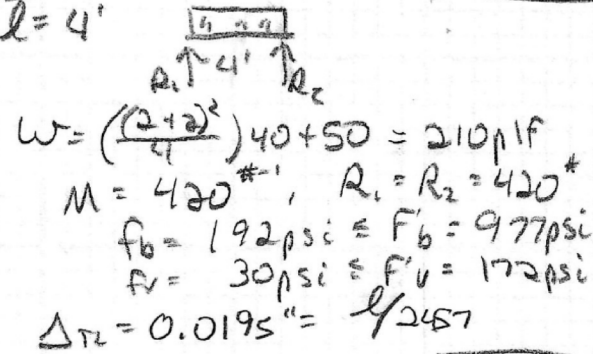 l = 4'
R₁ 4' R₂
W = ((2+2)²/4) 40 + 50 = 210plf
M = 420#-', R₁ = R₂ = 420#
fb = 192psi ≤ F'b = 977psi
fv = 30psi ≤ F'v = 172psi
ΔTL = 0.0195" = l/2457